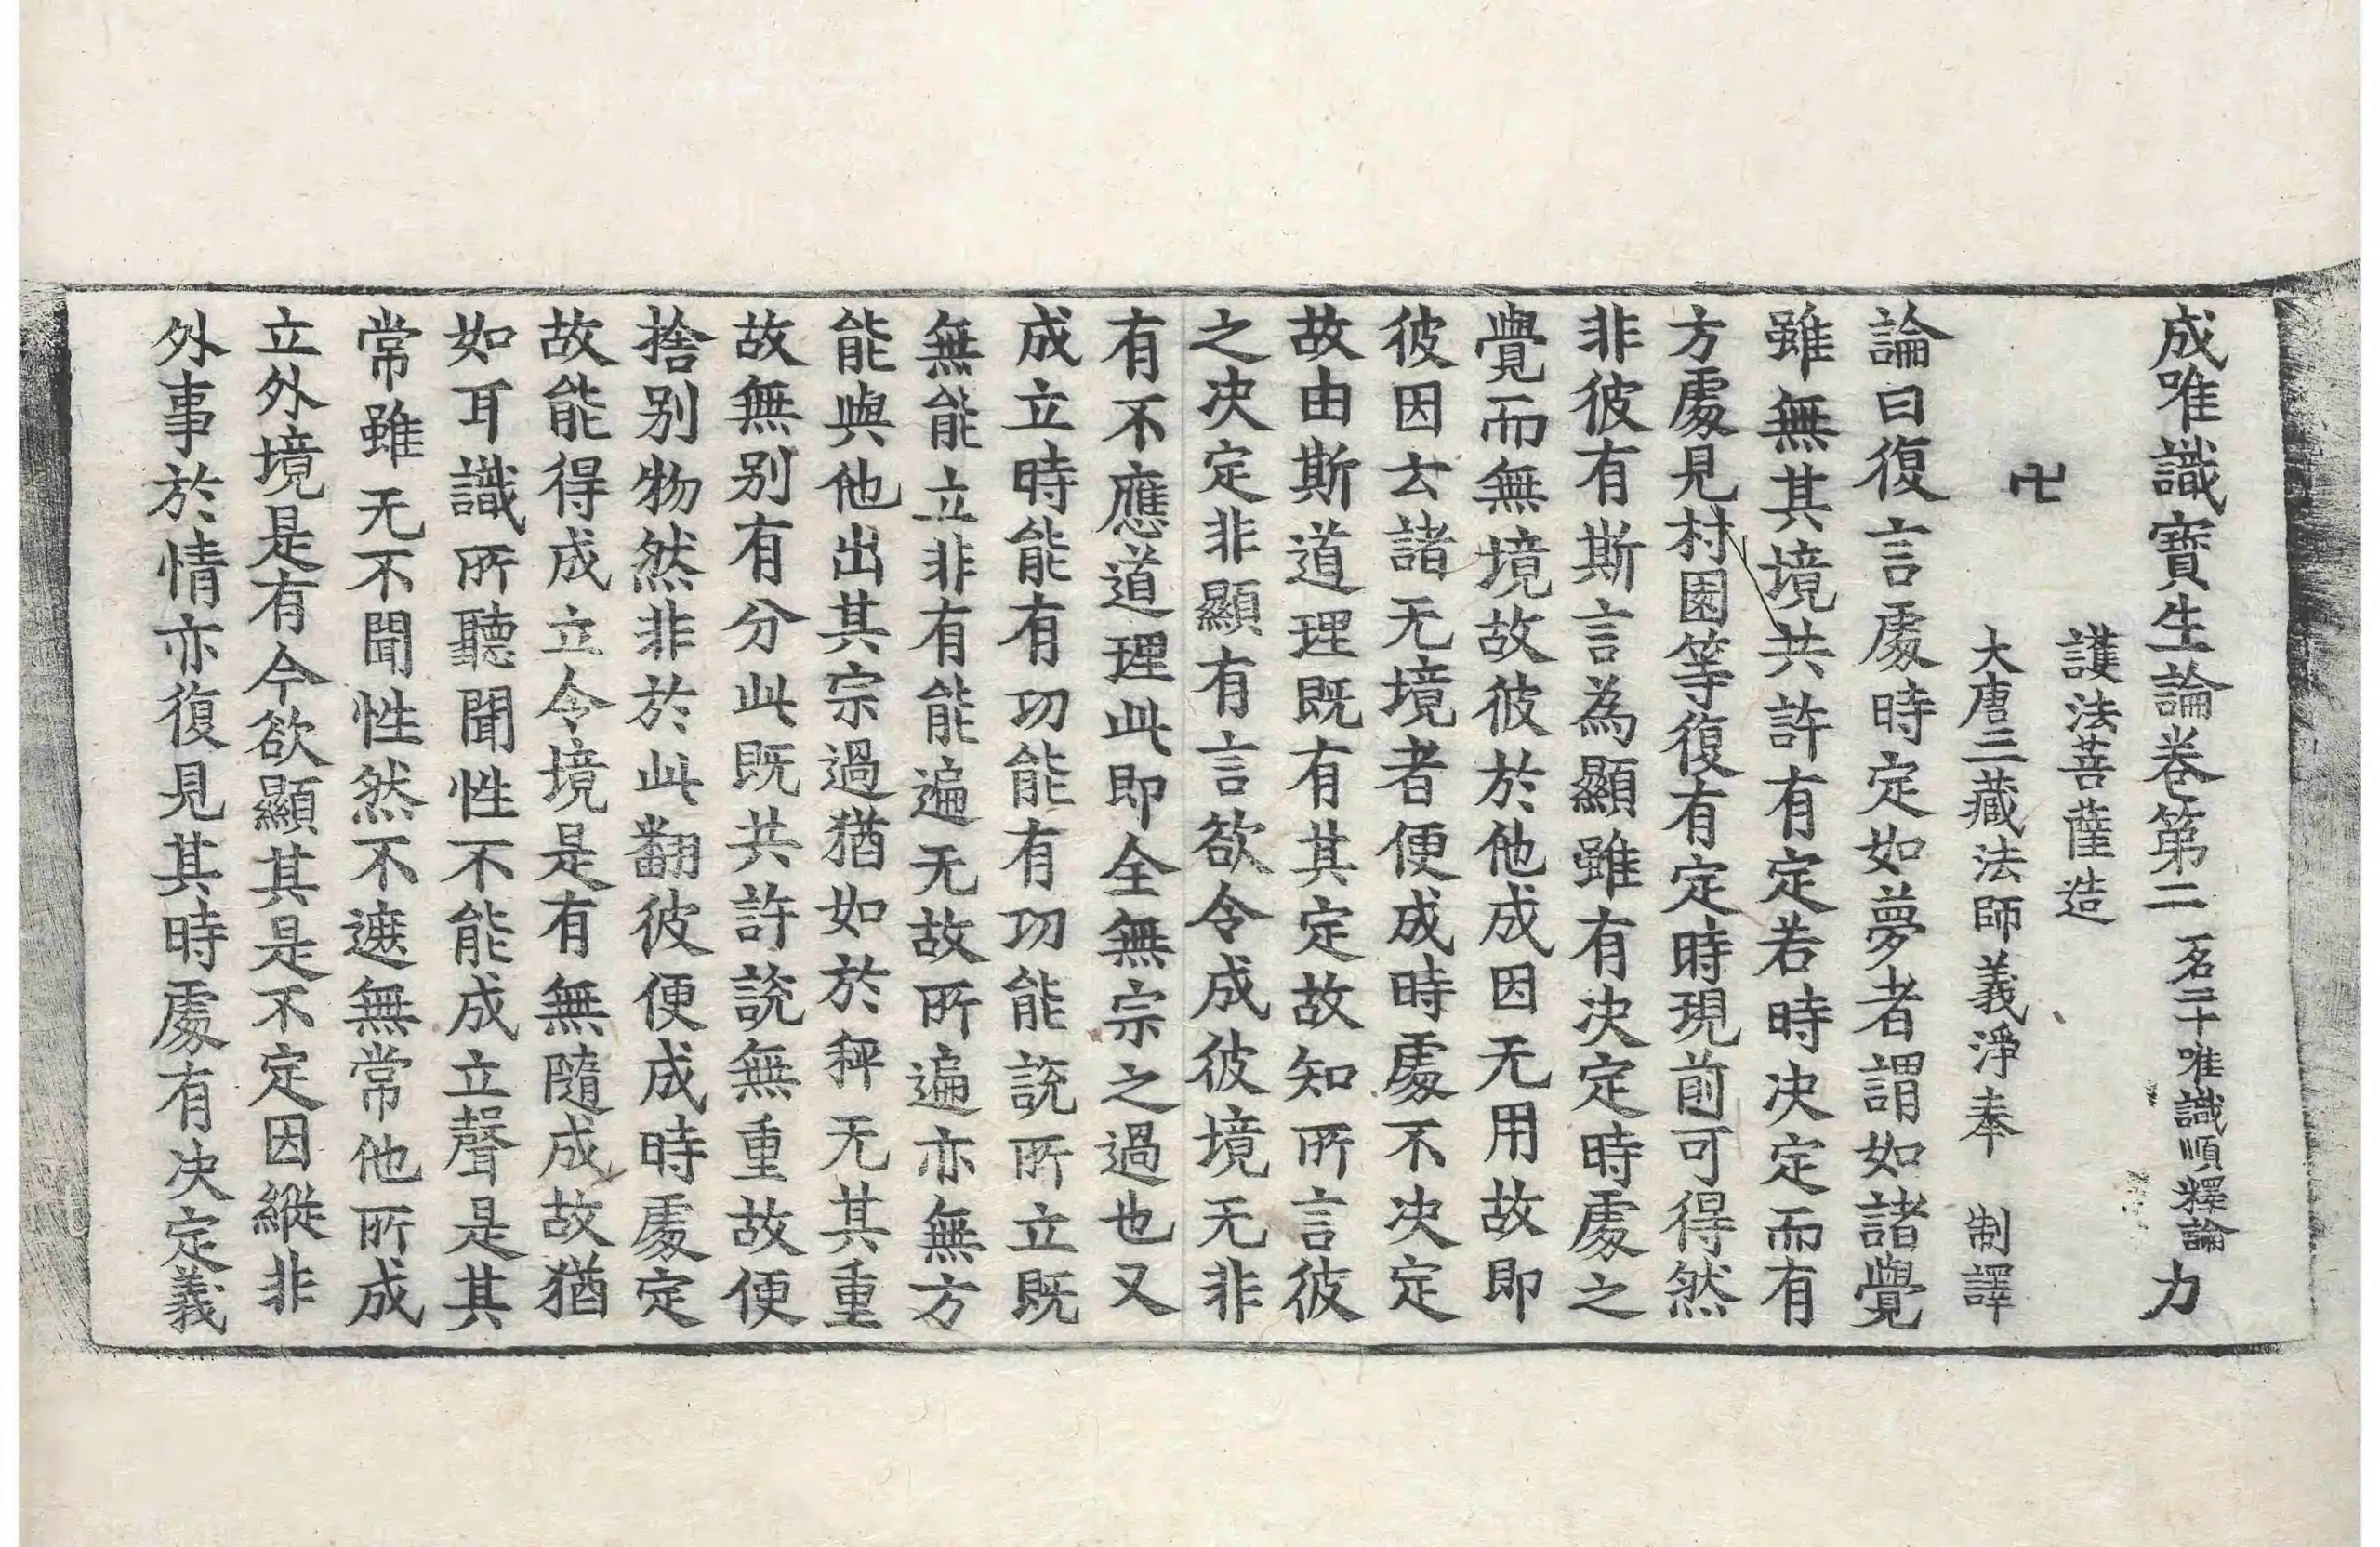 成唯識寶生論卷第二 一名二十唯識順釋論 力
護法菩薩造
卍
大唐三藏法師義淨奉 制譯
論曰復言處時定如夢者謂如諸覺
雖無其境共許有定若時決定而有
方處見村園等復有定時現前可得然
非彼有斯言為顯雖有決定時處之
覺而無境故彼於他成因无用故即
彼因去諸无境者便成時處不決定
故由斯道理既有其定故知所言彼
之決定非顯有言欲令成彼境无非
有不應道理此即全無宗之過也又
成立時能有功能有功能說所立既
無能立非有能遍无故所遍亦無方
能與他出其宗過猶如於秤无其重
故無别有分此既共許說無重故便
捨别物然非於此翻彼便成時處定
故能得成立令境是有無隨成故猶
如耳識所聽聞性不能成立聲是其
常雖无不聞性然不遮無常他所成
立外境是有今欲顯其是不定因縱非
外事於情亦復見其時處有決定義